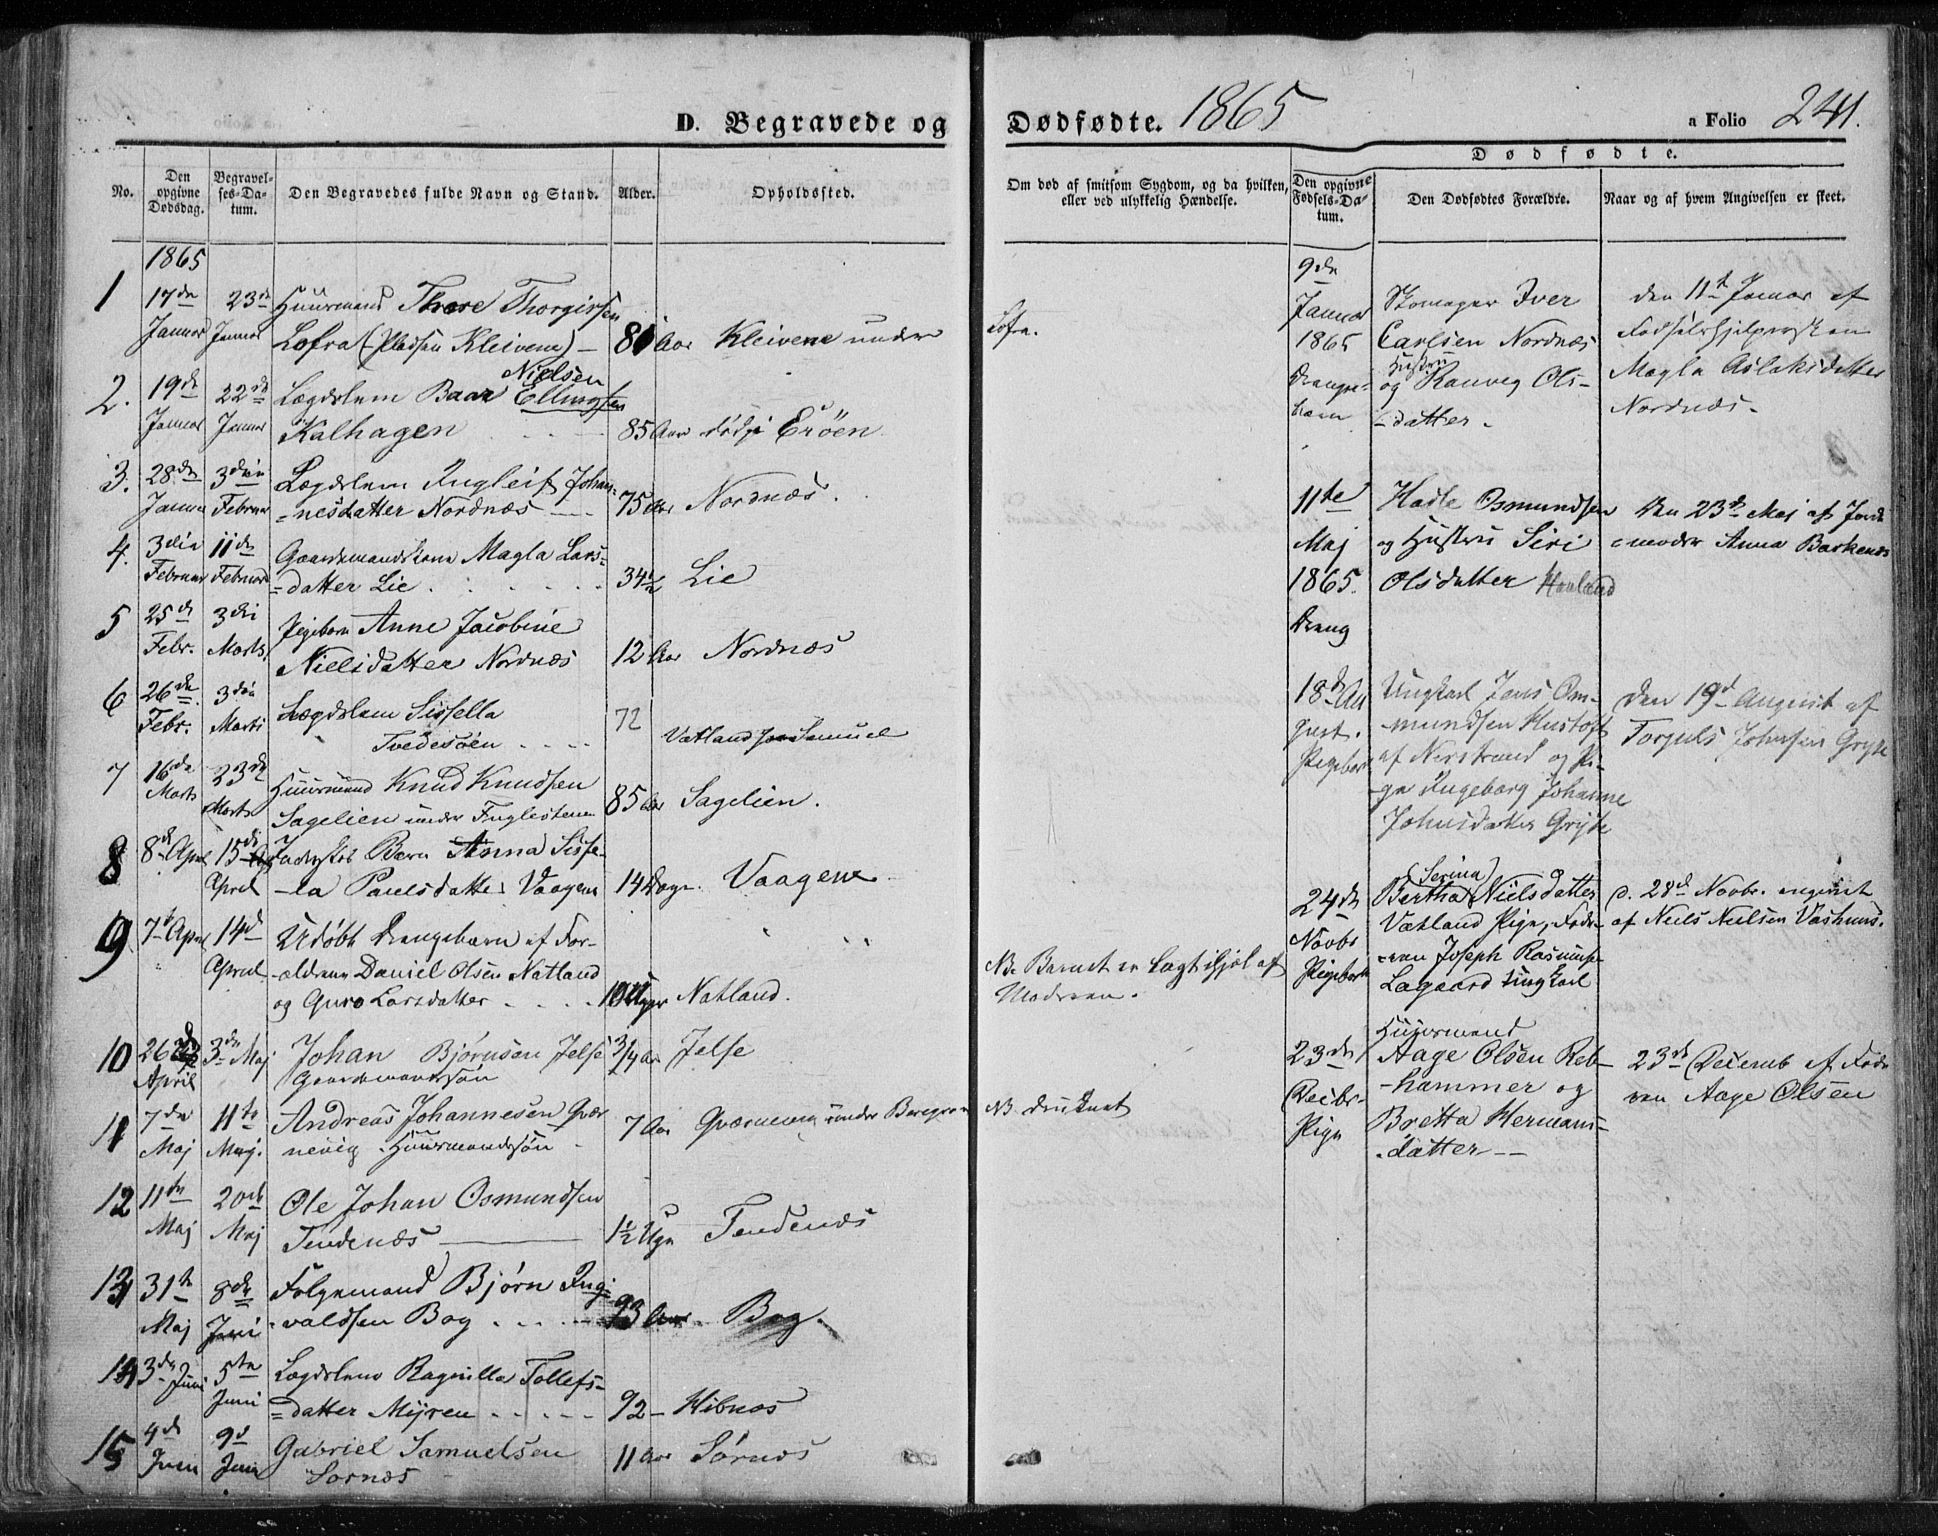 D. Begravede og Dødfødte. 1865
a Folio 241.
No.
Den opgivne Dødsdag.
Begravelses-Datum.
Den Begravedes fulde Navn og Stand.
Alder.
Opholdssted.
Om død af smitsom Sygdom, og da hvilken,
eller ved ulykkelig Hændelse.
Dødfødte.
Den opgivne Fødsels-Datum.
Den Dødfødtes Forældre.
Naar og af hvem Angivelsen er skeet.
1865
1 17de 23de Huusmand Thore Thorgirsen
Januar Januar Lofra (Pladsen Kleivene) — 81 Aar Kleivene under Lofra.
Nielsen
2. 19de 22de Lægdslem Baar Ellingsen
Januar Januar Kalhagen 85 Aar død i Erøen
3. 28de 3die Lægdslem Ingleif Johan-
Januar Februar =nesdatter Nordnæs — 75 Aar Nordnæs.
4. 3die 11de Gaardmandskone Magla Lars-
Februar Februar =datter Lie 34½ Lie
5 25de 3die Pigebarn Anne Jacobine
Febr. Marts. Nielsdatter Nordnæs 12 Aar Nordnæs
6 26de 3die Lægdslem Sissella
Febr. Marts Tvedesøen 72 Vatland Samuel
7 16de 23de Huusmand Knud Knudsen
Marts Marts Sagelien under Fuglesteen 85 Aar Sagelien.
8 8de April 15de Barn Anna Sisse-
April -la Paulsdatter Vaagene 14 Dage. Vaagene
9 7de April 14de Udøbt Drengebarn af For-
April -ældrene Daniel Olsen Natland
og Guro Larsdatter 10 Uger Natland.
NB. Barnet er lagt ihjel af
Moderen.
10 26de 3de Maj Johan Bjørnson Jelse ¾ Aar Jelse
April Gaardmandssøn
11 7de 11te Andreas Johannesen Qvær-
Maj Maj. nevig. Huusmandssøn 7 Aar Qværnevig under Baregrov NB. druknet
12 11te 20de Ole Johan Osmundsen
Maj Maj Tendenæs — 1½ Uge Tendenæs
13 31te 8de Følgemand Bjørn Ing-
Maj Juni -valdsen Bog 93 Aar Bog.
14 3de Juni 5te Lægdslem Ragnilla Tollefs-
Juni =datter Myren 92 — Hibnæs
15 4de 9de Gabriel Samuelsen
Juni Juni Sørnæs 11 Aar Sørnæs
9de Januar 1865 Drengebarn
Skomager Iver
Carlsen Nordnæs
og Hustru Ranveg Ols-
-datter.
den 11te Januar af
Fødselshjelpersken
Magla Aslaksdatter
Nordnæs.
11te Maj 1865. Dreng
Hadle Osmundsen
og Hustru Siri
Olsdatter Hauland
Den 23de Maj af Jorde-
=moder Anna Barkenæs
18de August. Pigebarn
Ungkarl Jens Os-
mundsen Hustoft
af Nerstrand og Pi-
-ge Ingeborg Johanne
Johnsdatter Gryte
Den 19de August af
Torjuls Johnsen Gryte
24de Novbr Pigebarn
(Serina)
Bertha Nielsdatter
Vatland Pige, Fade-
-ren Joseph Rasmus-
Lagaard Ungkarl
d. 28de Novbr. angivet
af Neils Nielsen Vashuus.
23de Decbr. Pige
Huusmand
Aage Olsen Reb-
-hammer og
Bretta Hermans-
-datter — —
23de Decemb af Fade
ren Aage Olsen